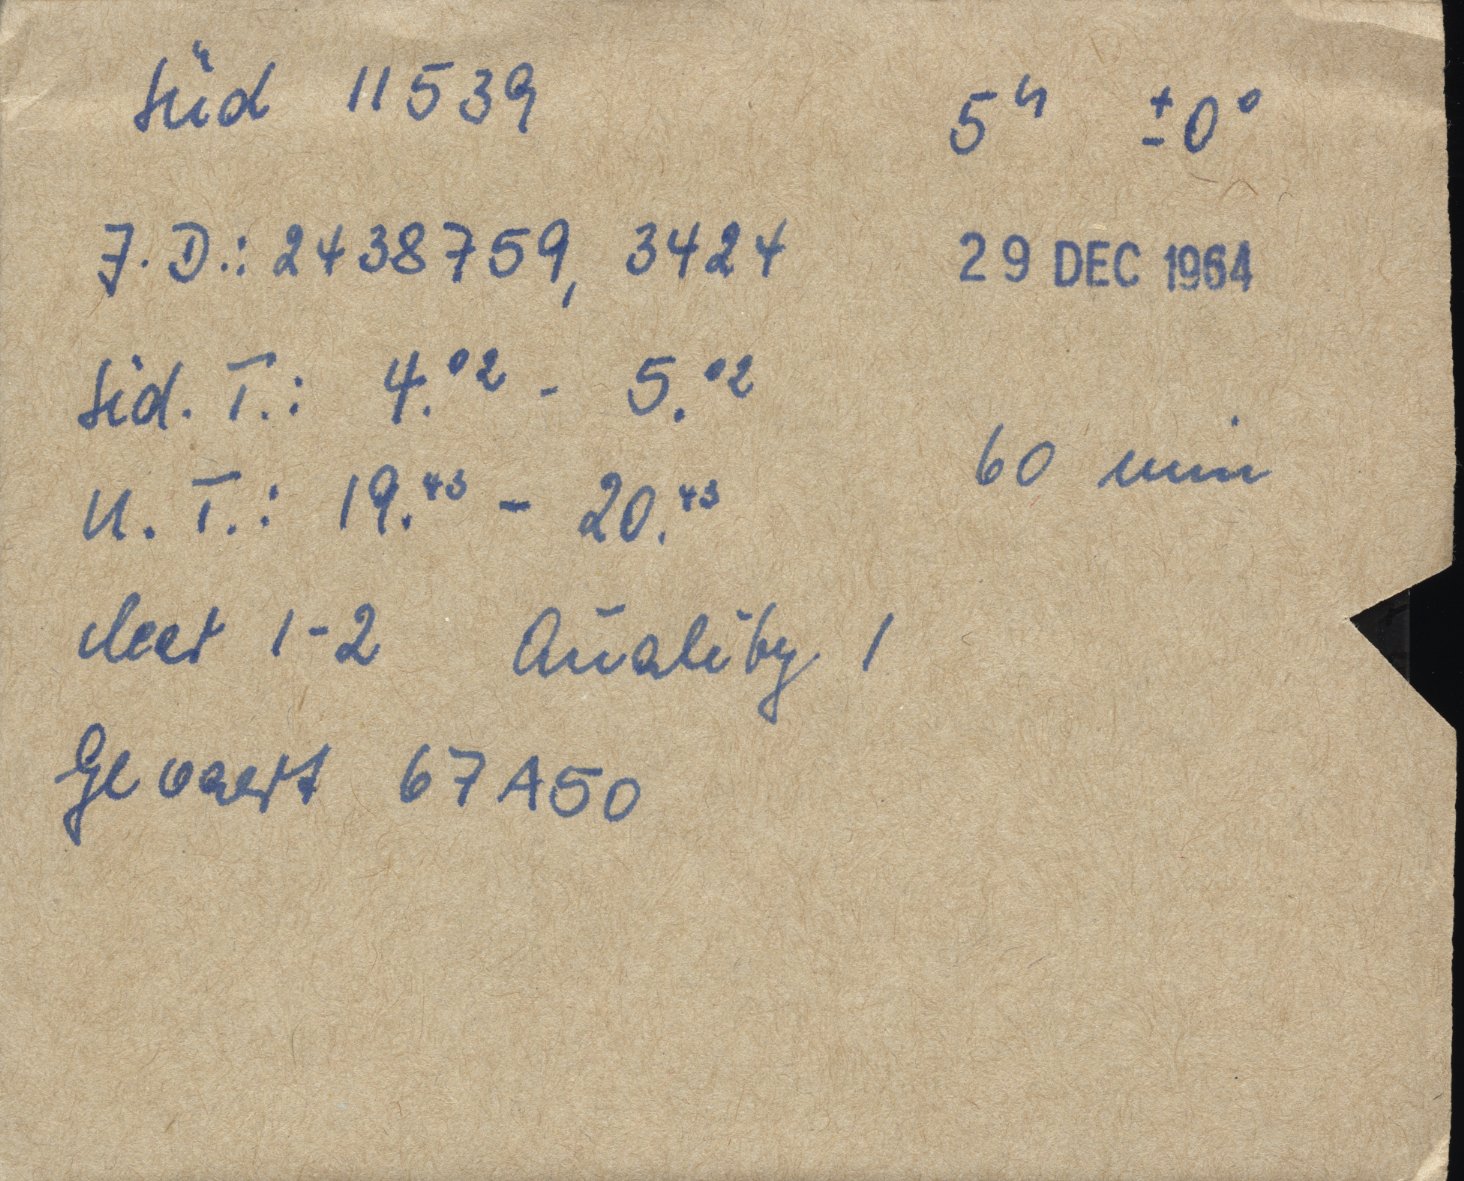 Süd 11539 5ʰ ±0°
J.D.: 2438759, 3424 29 DEC 1964
Sid. T.: 4.⁰² - 5.⁰²
60 min
U. T.: 19.⁴³ - 20.⁴³
clear 1-2 Quality 1
Gevaert 67A50